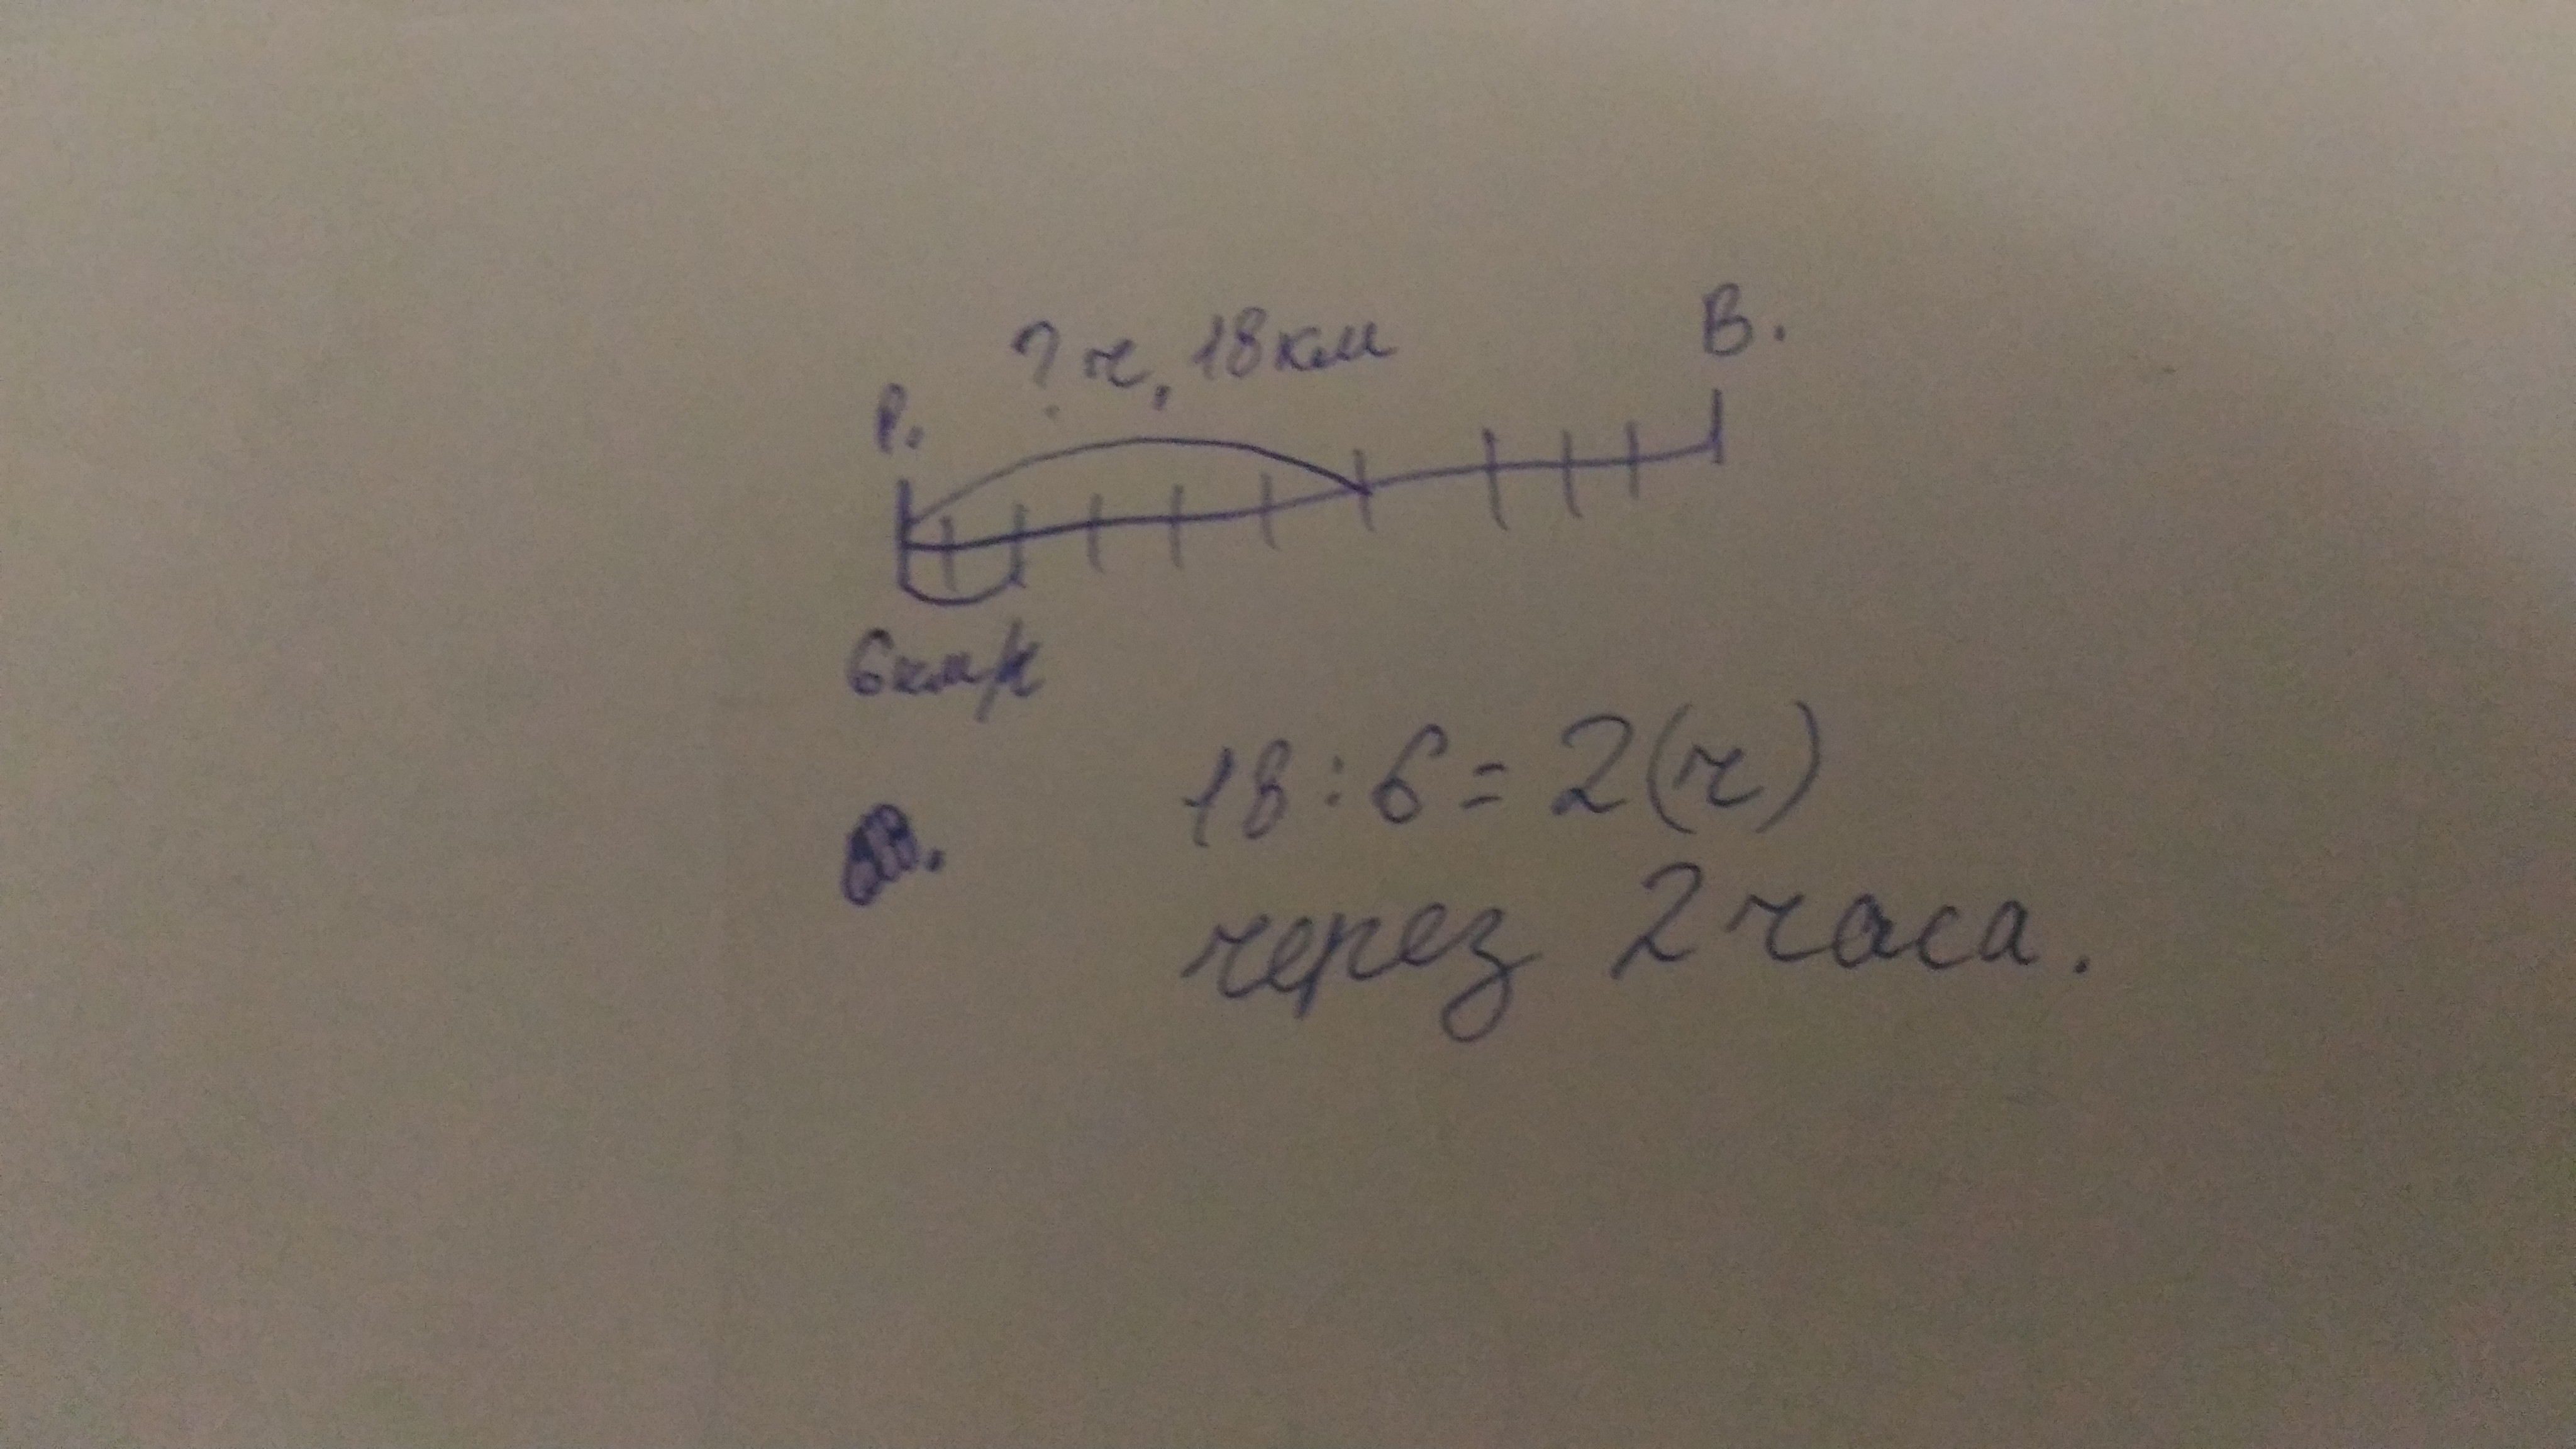 ? ч, 18 км
В.
Р.
6 км/ч
18 : 6 = 2 (ч)
через 2 часа.